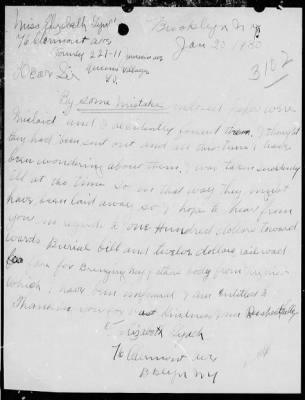 Miss Elizabeth Lynch
76 Clermont Ave
Brooklyn N.Y.
Jan 20 1930
221-11
Queens Village
N.Y.
3/02
Dear Sir
By some mistake enclosed paper were
mislaid and I recently found them. I thought
they had been sent out and all this time I have
been wondering about them. I was taken suddenly
ill at the time so in that way they might
have been laid away so I hope to hear from
you in regards to one Hundred dollars toward
wards Burial bill and twelve dollars railroad
fare for Bringing body from
which I have been informed I am Entitled to
Thanking you for kindness I am Respectfully
Elizabeth Lynch
76 Clermont Ave
B klyn N.Y.